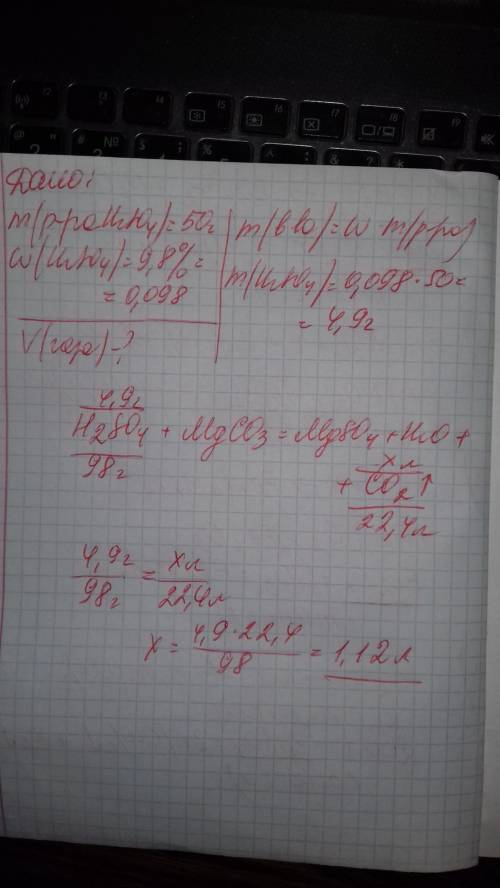 Дано:
m(р-ра H2SO4)=50г
w(H2SO4)=9,8%=
=0,098
V(газа)-?
m(в-ва)=w·m(р-ра)
m(H2SO4)=0,098·50=
=4,9г
4,9г
H2SO4 + MgCO3 = MgSO4 + H2O +
98г
xл
+ CO2↑
22,4л
4,9г = xл
98г 22,4л
x = 4,9·22,4 = 1,12л
98